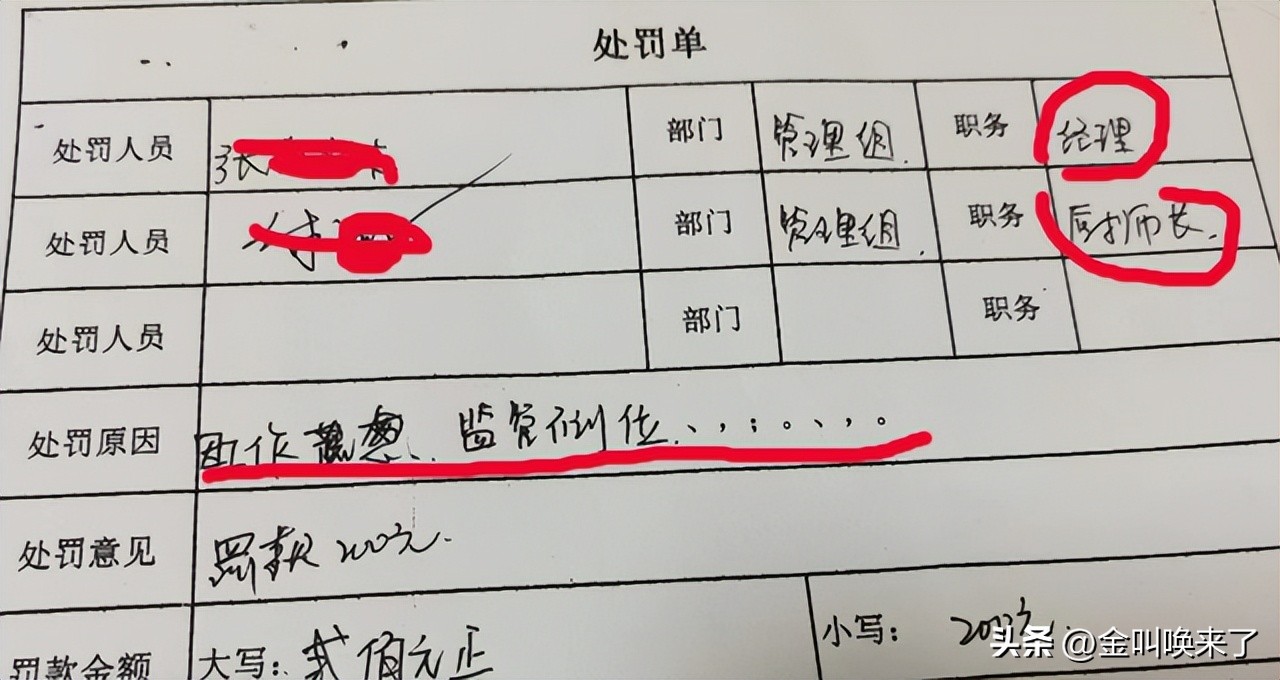 处罚单
处罚人员 张 部门 管理组. 职务 经理
处罚人员 部门 管理组. 职务 厨师长.
处罚人员 部门 职务
处罚原因 工作 监管不到位、,:。、,。
处罚意见 罚款200元.
罚款金额 大写: 贰佰元正 小写: 200元.
头条 @金叫唤来了